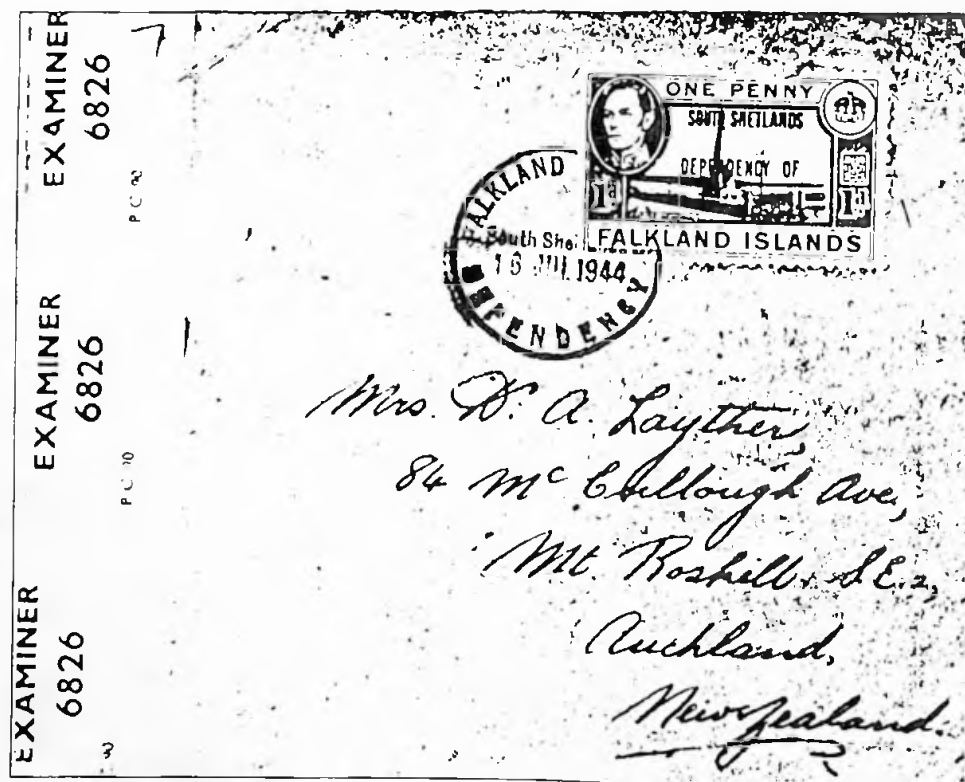 EXAMINER
6826
P C 90
EXAMINER
6826
P C 90
EXAMINER
6826
3
ONE PENNY
SOUTH SHETLANDS
DEPENDENCY OF
1d 1d
FALKLAND ISLANDS
FALKLAND
South Shet
16 JUL 1944
DEPENDENCY
Mrs. D. A. Layther,
84 Mc Cullough Ave,
Mt. Roskill. S.E.2,
Auckland,
New Zealand.